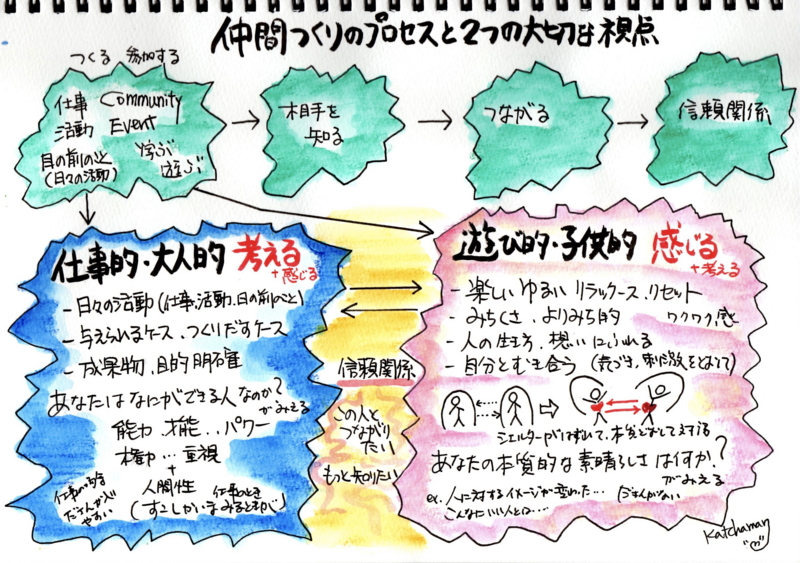 仲間づくりのプロセスと2つの大切な視点
つくる 参加する
仕事 Community
活動 Event
目の前のこと 学ぶ
(日々の活動) 遊ぶ
相手を
知る
つながる
信頼関係
仕事的・大人的 考える
+感じる
- 日々の活動(仕事、活動、目の前のこと)
- 与えられるケース、つくりだすケース
- 成果物、目的明確
あなたはなにができる人なのか?
がみえる
能力、才能、、パワー
権力…重視
+
人間性 仕事のとき
(すこしかいまみるとわかる)
仕事の場合
だきょうが入り
やすい
信頼関係
この人と
つながり
たい
もっと知りたい
遊び的・子供的 感じる
+考える
- 楽しい ゆるい リラックース、リセット
- みちくさ、よりみち的 ワクワク感
- 人の生き方、想いにふれる
- 自分とむき合う (気づき、刺激をとおして)
シェルターがはずれて、本質をおとして対する
あなたの本質的な素晴らしさは何か?
がみえる
ex. 人に対するイメージが変わった…
こんなにいい人とは…
Katchaman